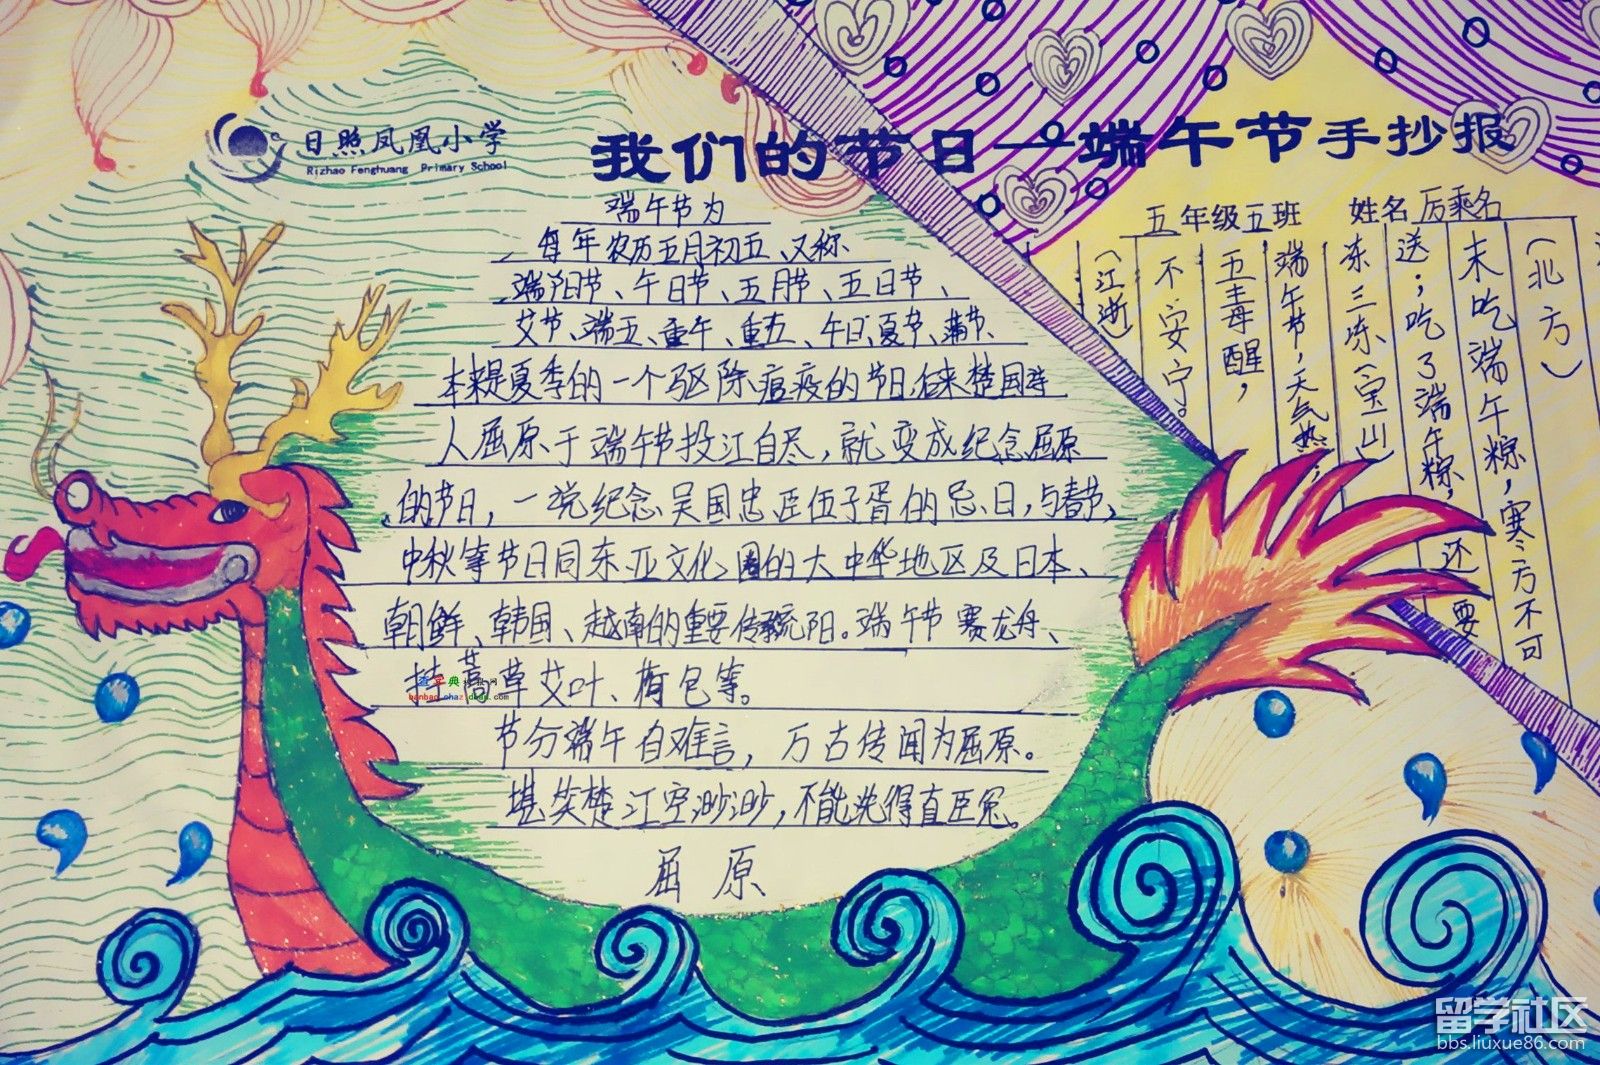 日照凤凰小学
Rizhao Fenghuang Primary School
我们的节日——端午节手抄报
五年级五班 姓名 厉乘名
端午节为
每年农历五月初五、又称
端阳节、午日节、五月节、五日节、
艾节、端五、重午、重五、午日、夏节、蒲节、
本来是夏季的一个驱除瘟疫的节日,后来楚国诗
人屈原于端午节投江自尽,就变成纪念屈原
的节日,一说纪念吴国忠臣伍子胥的忌日,与春节、
中秋等节日同东亚文化圈的大中华地区及日本、
朝鲜、韩国、越南的重要传统阳。端午节赛龙舟、
挂菖草艾叶、荷包等。
节分端午自难言,万古传闻为屈原。
堪笑楚江空渺渺,不能洗得直臣冤。
屈原
(北方)
未吃端午粽,寒衣不可
送;吃了端午粽,还要
冻三冻(宝山)
端午节,天气热;
五毒醒,
不安宁。
(江浙)
hanbao.chazidian.com
留学社区
bbs.liuxue86.com